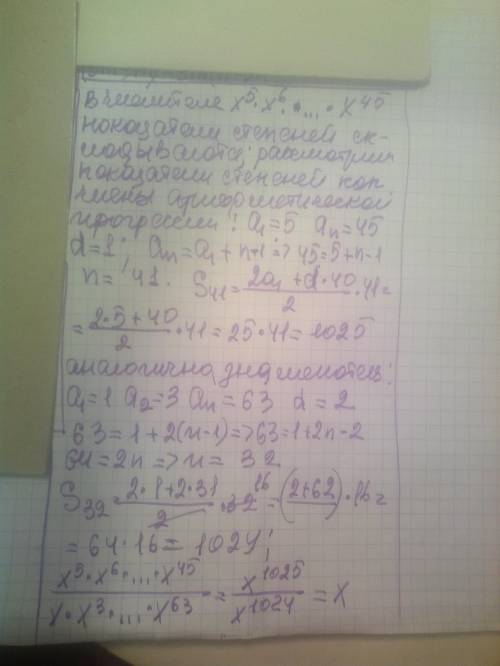 в числителе x⁵·x⁶·...·x⁴⁵
показатели степеней ск-
ладываются; рассмотрим
показатели степеней как
члены арифметической
прогрессии: a₁=5 aₙ=45
d=1; aₙ=a₁+n-1=>45=5+n-1
n=41. S₄₁=(2a₁+d·40)/2·41=
=(2·5+40)/2·41=25·41=1025
аналогично, знаменатель:
a₁=1 a₂=3 aₙ=63 d=2
63=1+2(n-1)=>63=1+2n-2
64=2n=>n=32
S₃₂=(2·1+2·31)/2·32 16=(2+62)·16=
=64·16=1024;
(x⁵·x⁶·...·x⁴⁵)/(x·x³·...·x⁶³)=x¹⁰²⁵/x¹⁰²⁴=x